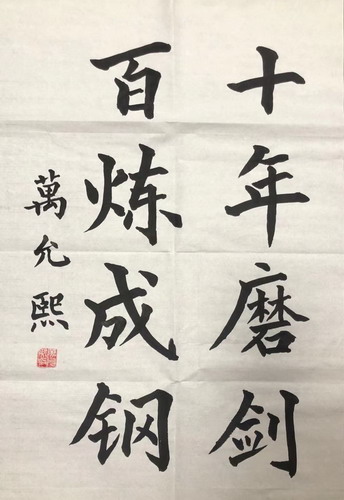 十年磨剑
百炼成钢
萬允熙